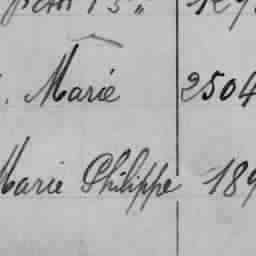 Marie 2504
Marie Philippe 189